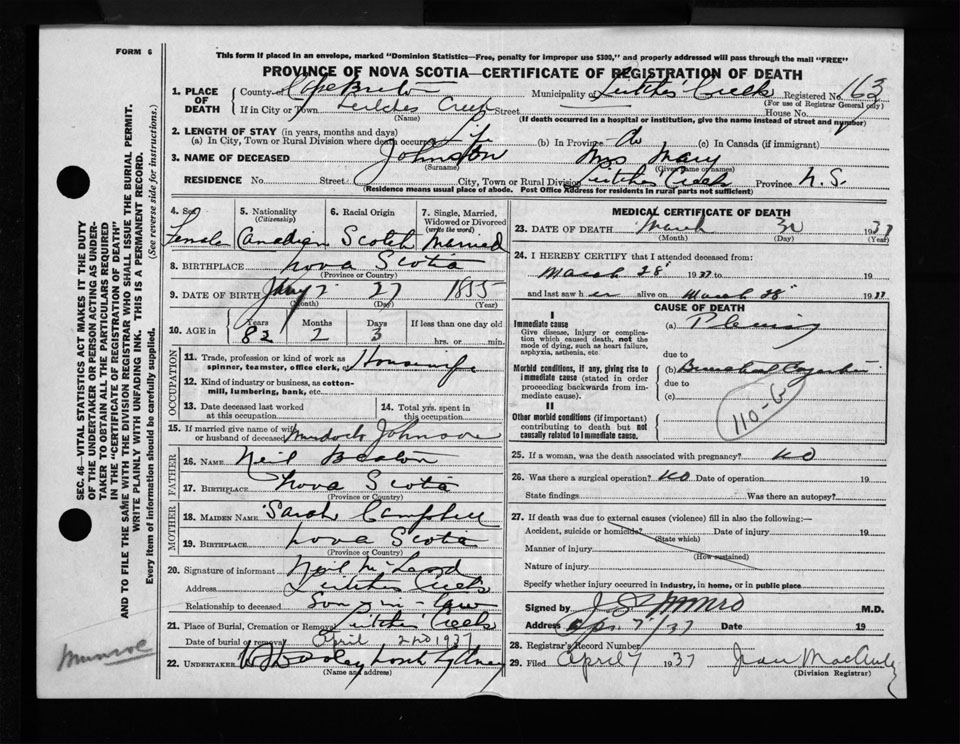 FORM 6
This form if placed in an envelope, marked "Dominion Statistics—Free, penalty for improper use $300," and properly addressed will pass through the mail "FREE"
PROVINCE OF NOVA SCOTIA—CERTIFICATE OF REGISTRATION OF DEATH
1. PLACE OF DEATH
County of Cape Breton Municipality of Leitches Creek Registered No. 163
(For use of Registrar General only)
If in City or Town Leitches Creek Street House No.
(Name) (If death occurred in a hospital or institution, give the name instead of street and number)
2. LENGTH OF STAY (in years, months and days)
(a) In City, Town or Rural Division where death occurred Life (b) In Province do (c) In Canada (if immigrant)
3. NAME OF DECEASED Johnston Mrs Mary
(Surname) (Given name or names)
RESIDENCE No. Street City, Town or Rural Division Leitches Creek Province N.S.
(Residence means usual place of abode. Post Office Address for residents in rural parts not sufficient)
4. Sex Female
5. Nationality (Citizenship) Canadian
6. Racial Origin Scotch
7. Single, Married, Widowed or Divorced (write the word) Married
8. BIRTHPLACE Nova Scotia
(Province or Country)
9. DATE OF BIRTH 27 1855
(Month) (Day) (Year)
10. AGE in Years 82 Months 2 Days 3 If less than one day old hrs. or min.
OCCUPATION
11. Trade, profession or kind of work as spinner, teamster, office clerk, etc. Housewife
12. Kind of industry or business, as cotton-mill, lumbering, bank, etc.
13. Date deceased last worked at this occupation
14. Total yrs. spent in this occupation
15. If married give name of wife or husband of deceased Murdock Johnson
FATHER
16. NAME Neil Beaton
17. BIRTHPLACE Nova Scotia
(Province or Country)
MOTHER
18. MAIDEN NAME Sarah Campbell
19. BIRTHPLACE Nova Scotia
(Province or Country)
20. Signature of informant Neil
Address Leitches Creek
Relationship to deceased Son in law
21. Place of Burial, Cremation or Removal Leitches Creek
Date of burial or removal April 2nd 1937
22. UNDERTAKER North Sydney
(Name and address)
MEDICAL CERTIFICATE OF DEATH
23. DATE OF DEATH March 30 1937
(Month) (Day) (Year)
24. I HEREBY CERTIFY that I attended deceased from:
March 28 1937 to 19
and last saw her alive on March 28 1937
CAUSE OF DEATH
I
Immediate cause
Give disease, injury or complication which caused death, not the mode of dying, such as heart failure, asphyxia, asthenia, etc.
(a) Pleurisy
due to
Morbid conditions, if any, giving rise to immediate cause (stated in order proceeding backwards from immediate cause).
(b) Bronchial
due to
(c)
110-B
II
Other morbid conditions (if important) contributing to death but not causally related to immediate cause.
25. If a woman, was the death associated with pregnancy? No
26. Was there a surgical operation? No Date of operation 19
State findings Was there an autopsy?
27. If death was due to external causes (violence) fill in also the following:—
Accident, suicide or homicide? Date of injury 19
(State which)
Manner of injury
(How sustained)
Nature of injury
Specify whether injury occurred in industry, in home, or in public place
Signed by Munro M.D.
Address Apr 7/37 Date 19
28. Registrar's Record Number
29. Filed April 7 1937
(Division Registrar)
SEC. 46—VITAL STATISTICS ACT MAKES IT THE DUTY
OF THE UNDERTAKER OR PERSON ACTING AS UNDER-
TAKER TO OBTAIN ALL THE PARTICULARS REQUIRED
IN THE "CERTIFICATE OF REGISTRATION OF DEATH"
AND TO FILE THE SAME WITH THE DIVISION REGISTRAR WHO SHALL ISSUE THE BURIAL PERMIT.
WRITE PLAINLY WITH UNFADING INK. THIS IS A PERMANENT RECORD.
Every item of information should be carefully supplied. (See reverse side for instructions.)
Munroe